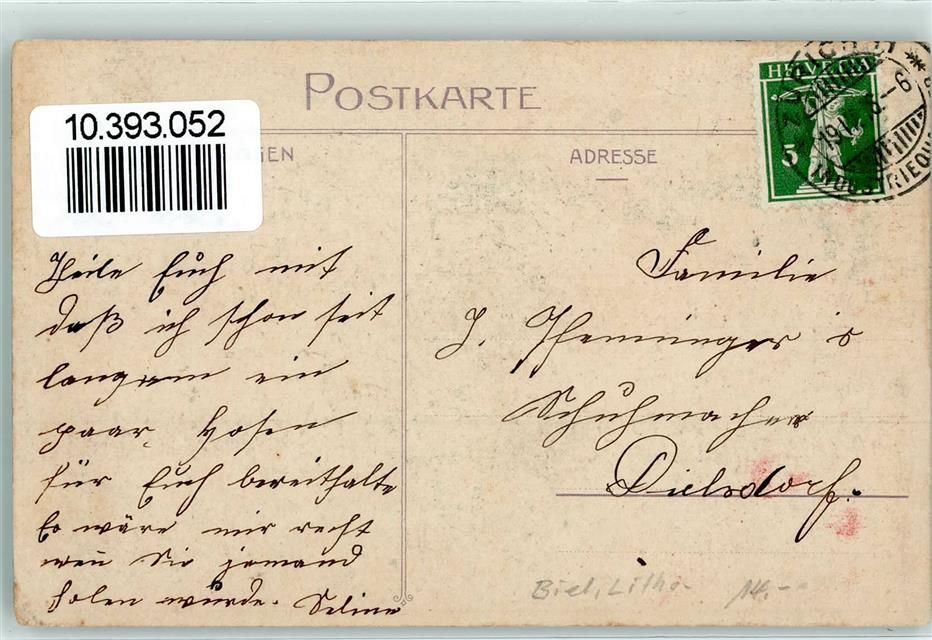 POSTKARTE
10.393.052
GEN
ADRESSE
HELVETIA
5
Theile Euch mit
daß ich schon seit
langem ein
paar Hosen
für Euch bereithalte
Es wäre mir recht
wen̄ Sie jemand
holen würde. Seline
Familie
J. Pfenninger
Schuhmacher
Dielsdorf.
Biel, Litho 14.-